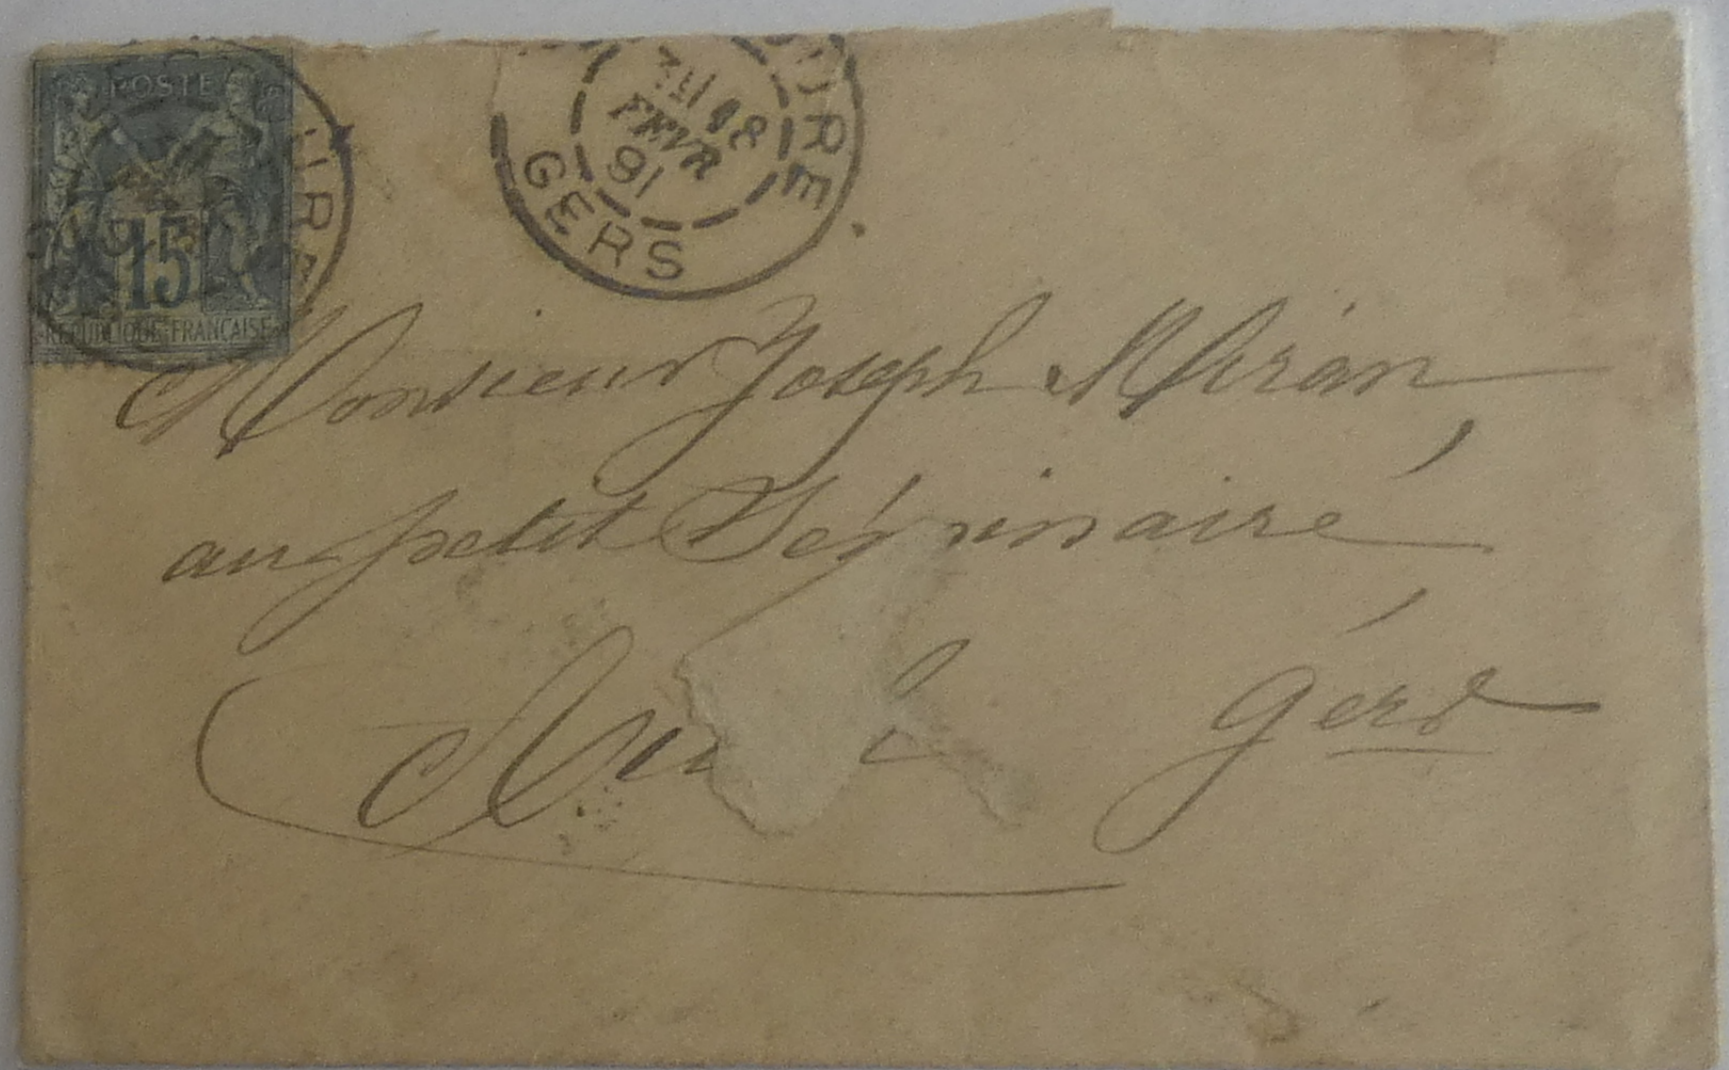 POSTE
15
REPUBLIQUE FRANÇAISE
FEVR
91
GERS
Monsieur Joseph Miran,
au petit Séminaire
Gers